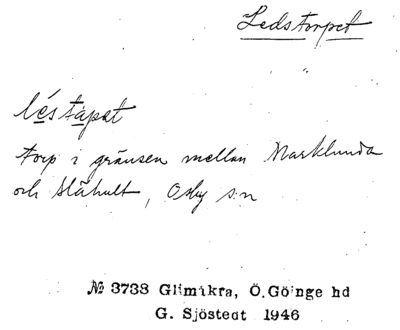 Ledstorpet
léstapat
torp i gränsen mellan Marklunda
och Slähult, Osby s:n
№ 3738 Glimåkra, Ö. Göinge hd
G. Sjöstedt 1946